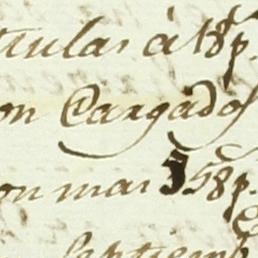 titulas á 18p.
on Cargados
on mas 58p.
Septiemb